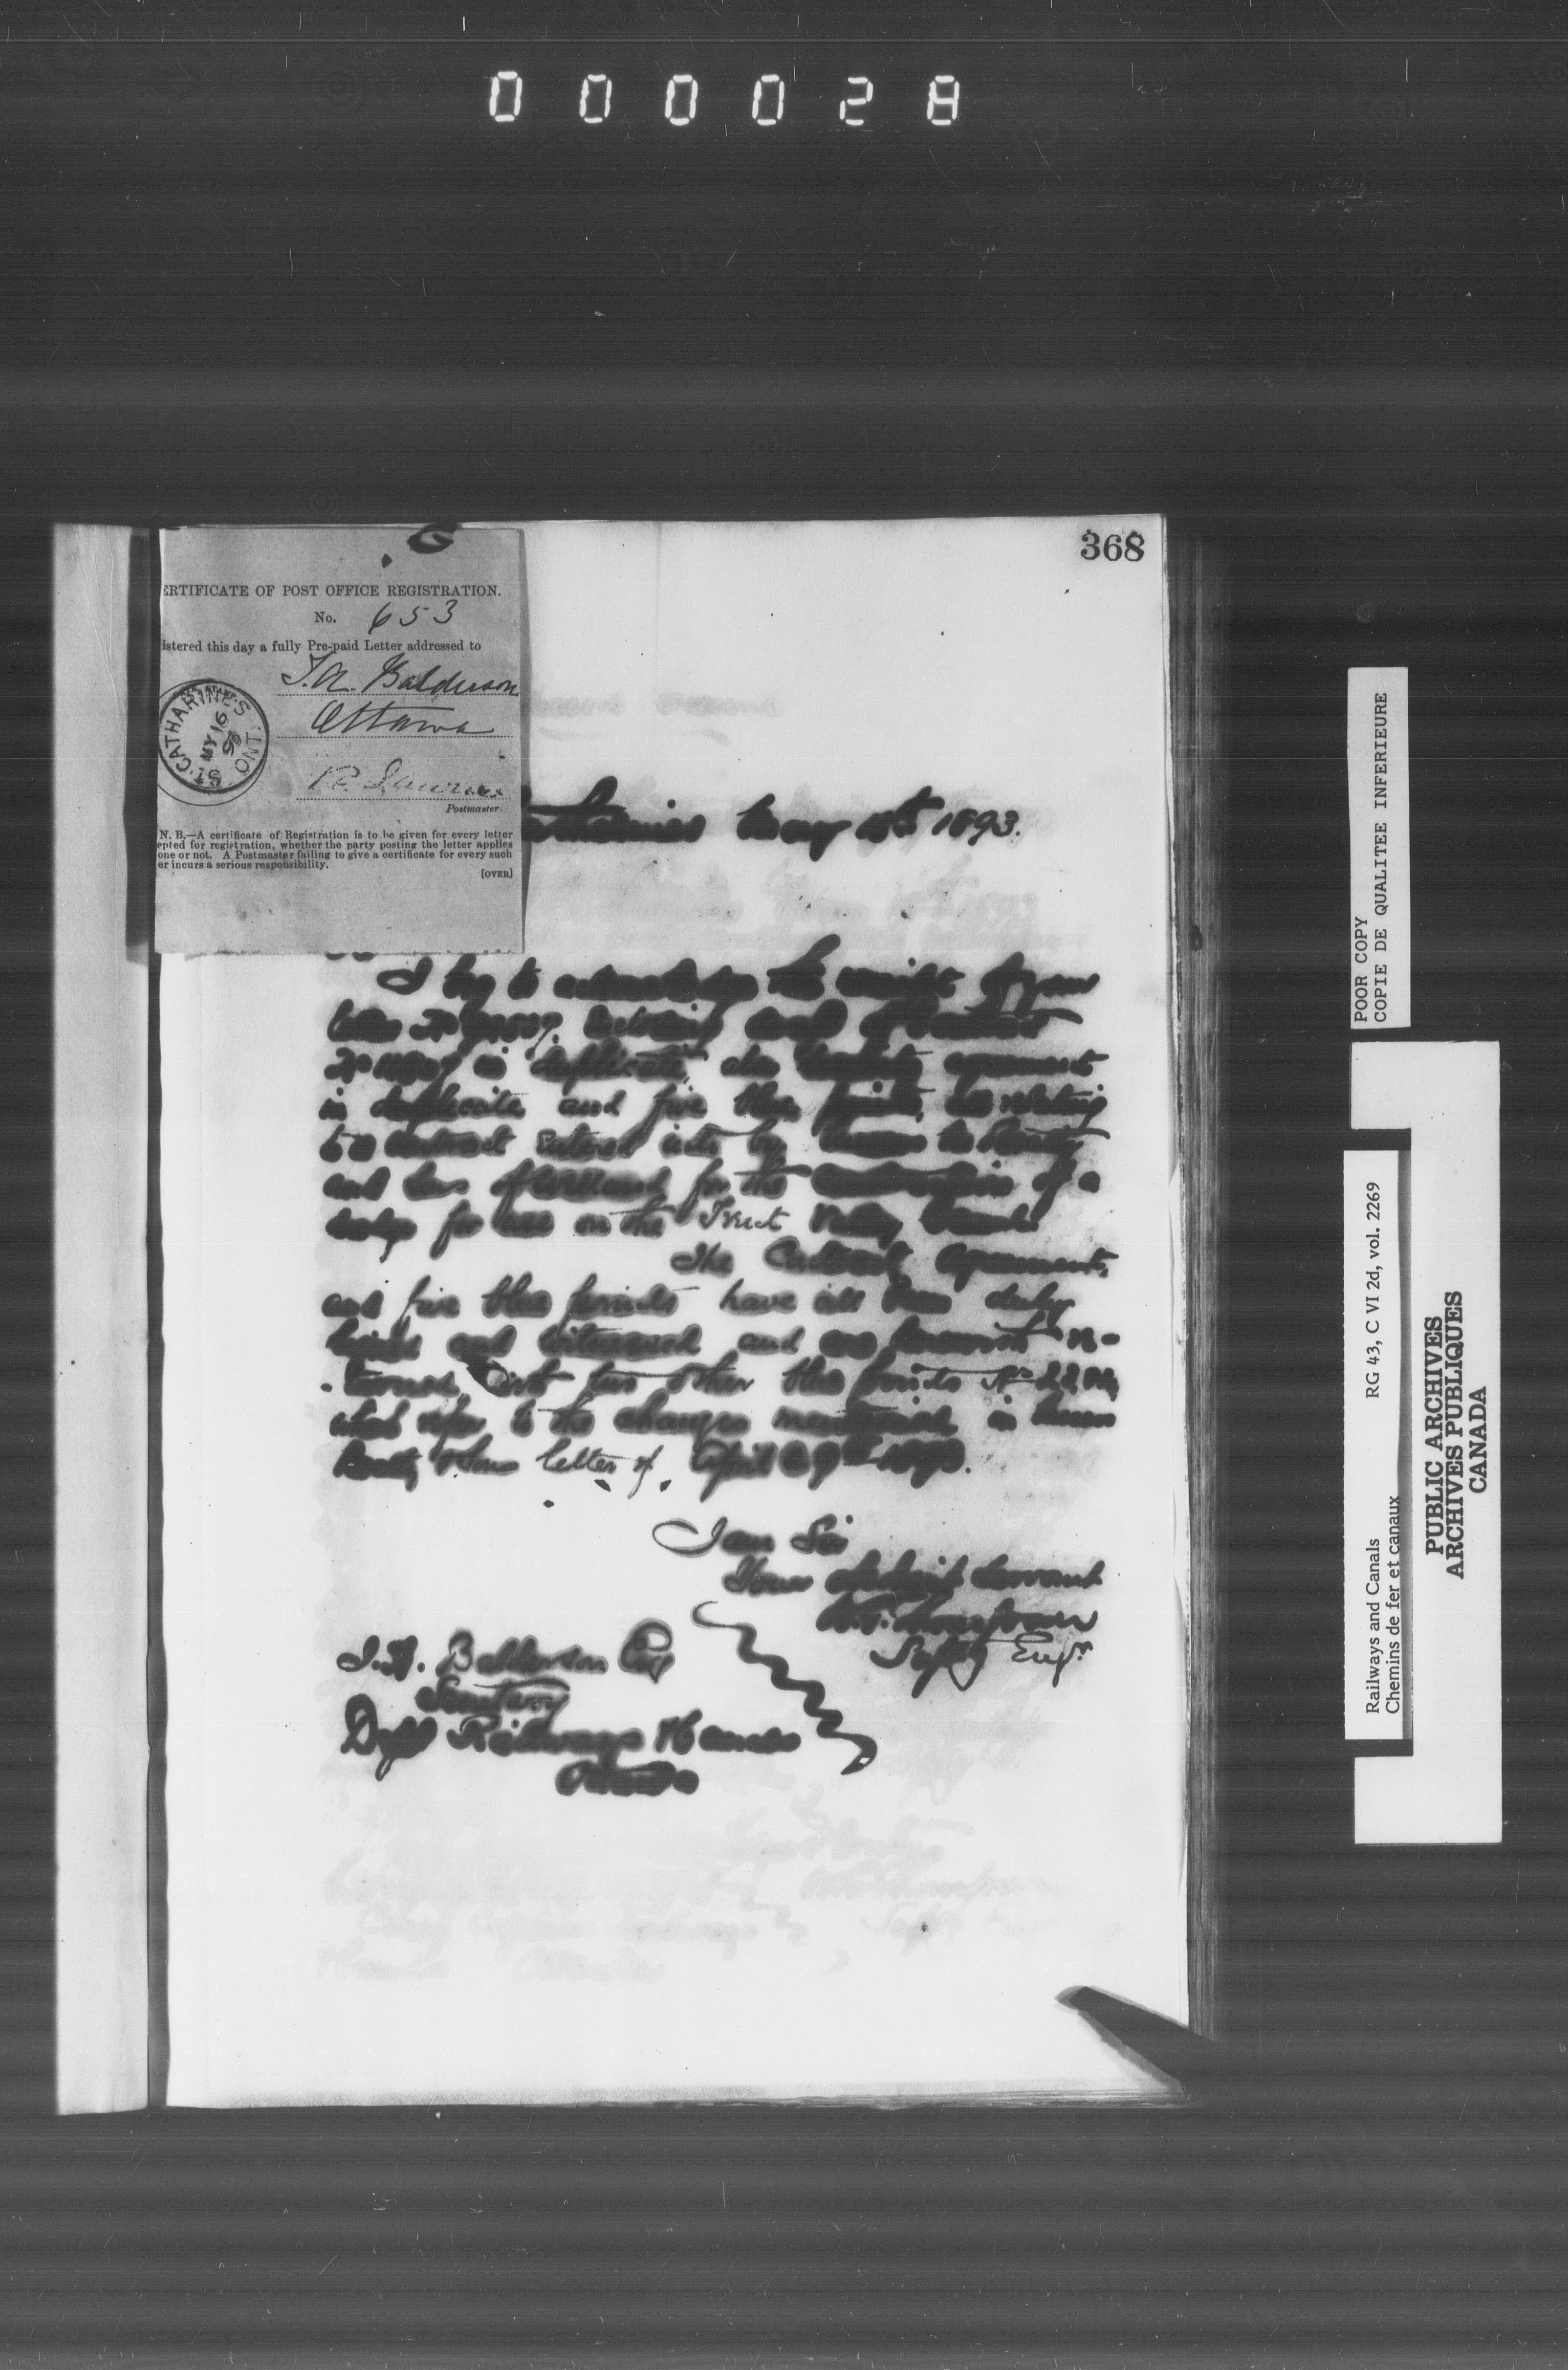 000028
368
ERTIFICATE OF POST OFFICE REGISTRATION.
No. 653
istered this day a fully Pre-paid Letter addressed to
J.A. Balderson
Ottawa
Postmaster.
ST. CATHARINES ONT.
MY 16
93
N. B.—A certificate of Registration is to be given for every letter
epted for registration, whether the party posting the letter applies
one or not. A Postmaster failing to give a certificate for every such
er incurs a serious responsibility.
[OVER]
atharines May 15th 1893.
I beg to acknowledge the receipt of your
letter No enclosing draft of contract
No in duplicate, also agreement
in duplicate and five blue prints, all relating
to a contract entered into by
and Sons of Welland for the construction of a
dredge for use on the Trent Valley Canal.
The Contract agreement,
and five blue prints have all been duly
signed and witnessed and are herewith re-
turned, with two other blue prints No
which refer to the changes mentioned in
Beatty & Sons letter of April 29th 1893.
I am Sir
Your obedient servant
Suptg Engr
J.H. Balderson Esq
Secretary
Dept Railways & Canals
Ottawa
POOR COPY
COPIE DE QUALITEE INFERIEURE
Railways and Canals RG 43, C VI 2d, vol. 2269
Chemins de fer et canaux
PUBLIC ARCHIVES
ARCHIVES PUBLIQUES
CANADA